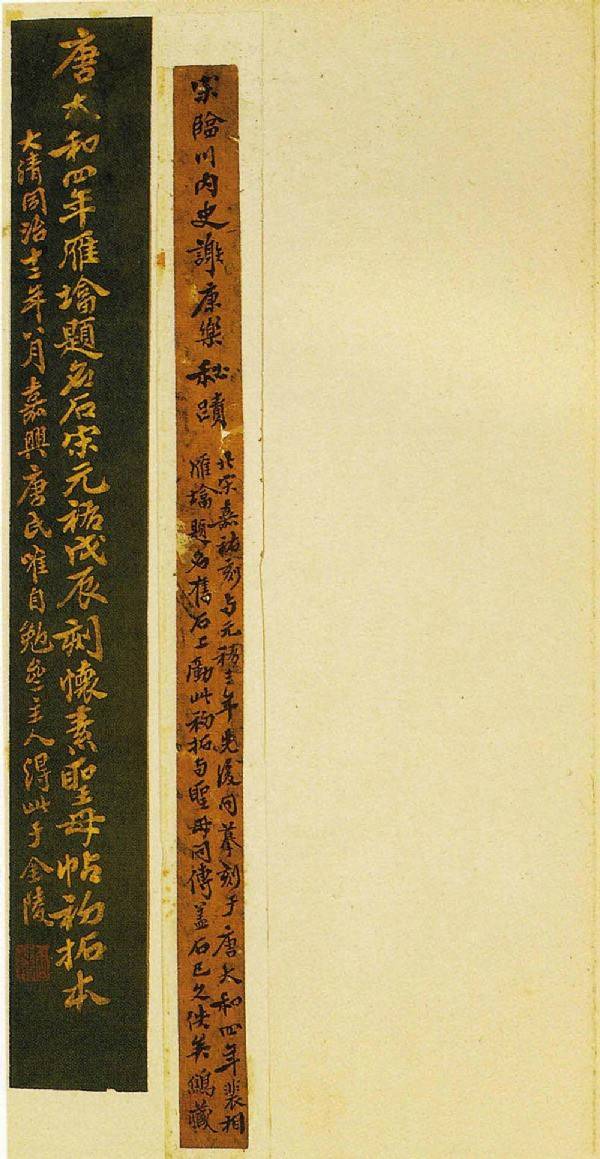 宋臨川內史謝康樂秘蹟
北宋嘉祐刻与元祐三年先後同摹刻于唐大和四年裴相
雁墖題名舊石上勵此初拓与聖母同傳蓋石已久佚矣鷦藏
唐大和四年雁墖題名石宋元祐戊辰刻懷素聖母帖初拓本
大清同治十三年八月嘉興唐氏唯自勉齋主人得此于金陵